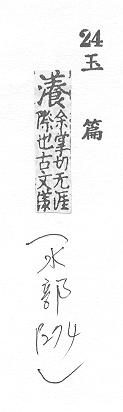 24 玉篇
瀁
余掌切无涯
際也古文漾
（水部1274）